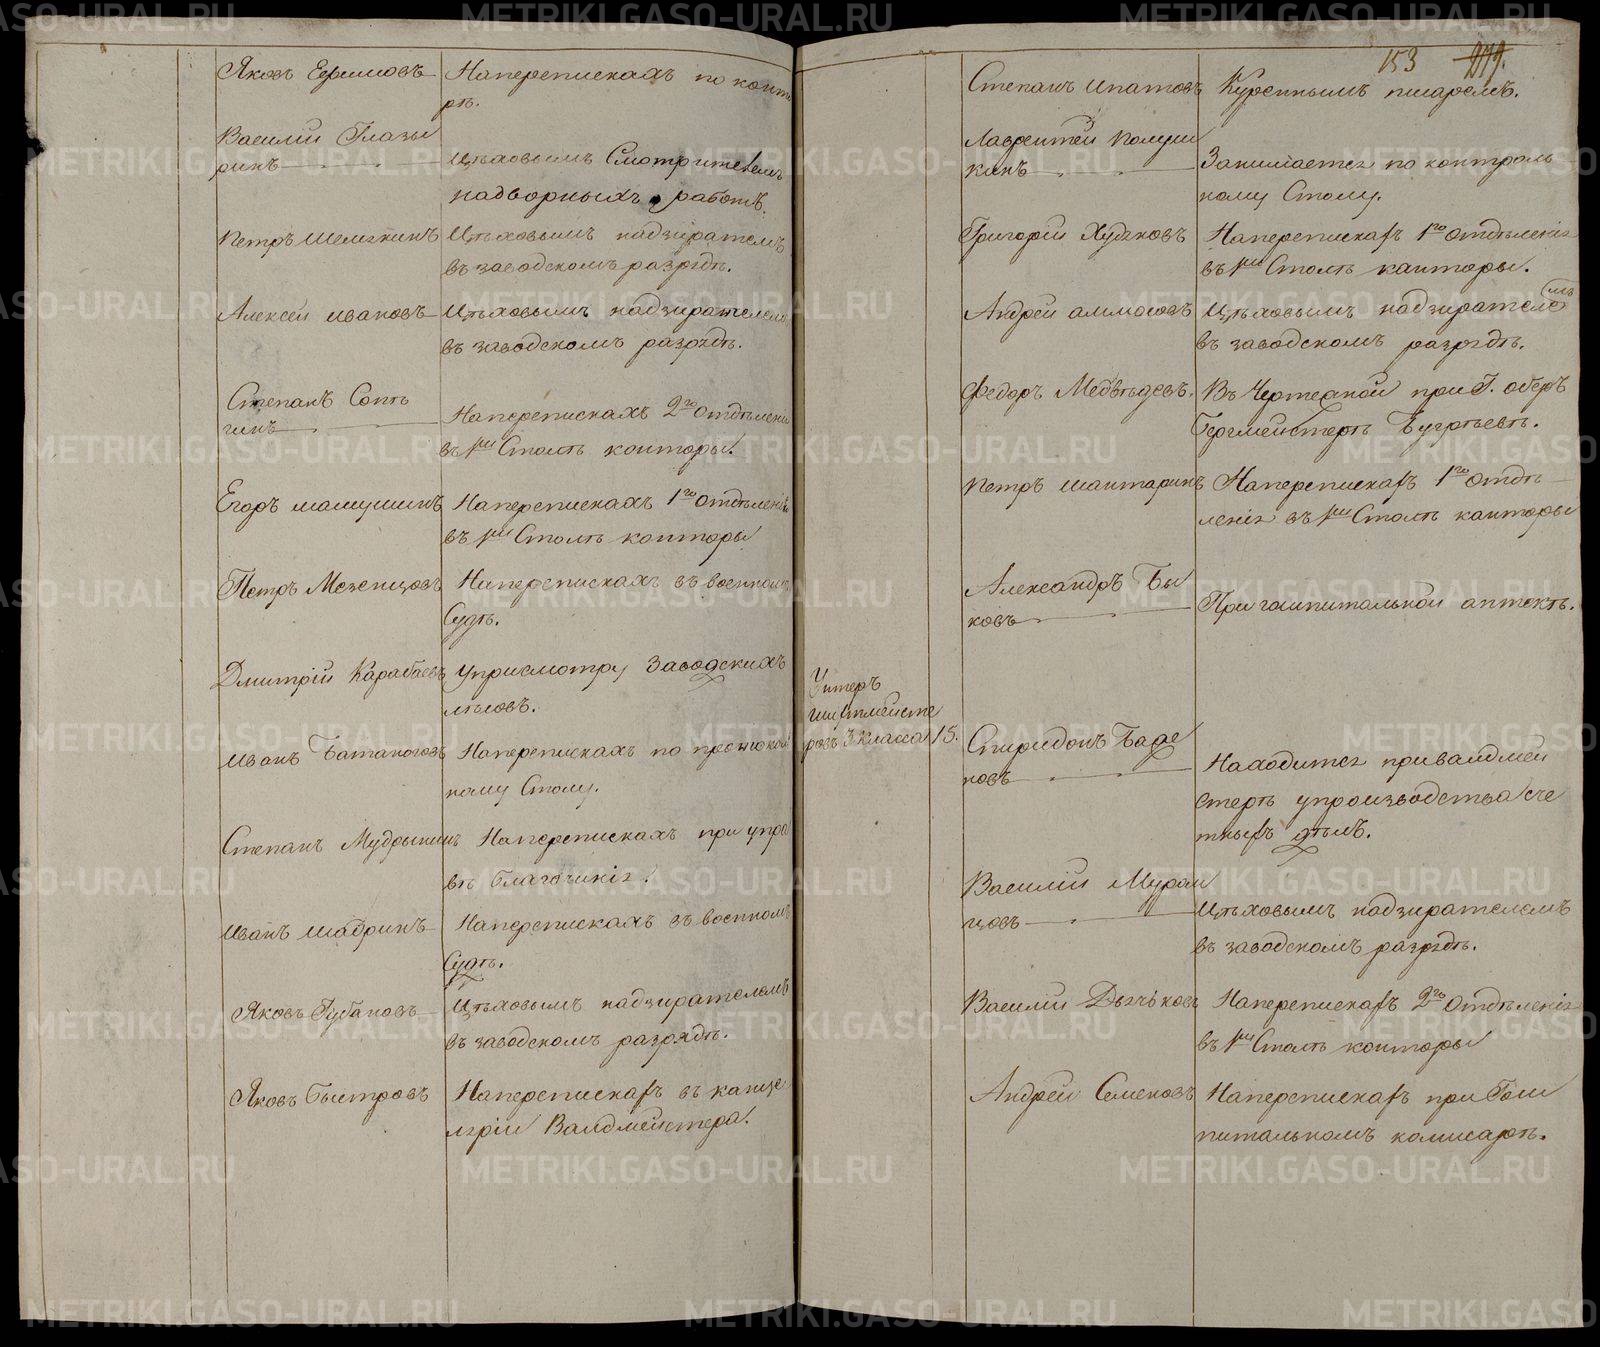 Яковъ Ефимовъ Наперепискахъ по конто
рѣ.
Василій Глазы
ринъ Цѣховымъ Смотрителемъ
надворныхъ работъ.
Петръ Шелегинъ Цѣховымъ надзирателемъ
въ заводскомъ разрядѣ.
Алексей Ивановъ Цѣховымъ надзирателемъ
въ заводскомъ разрядѣ.
Степанъ Сопѣ
гинъ Наперепискахъ 2го отдѣленія
въ Столѣ конторы.
Егоръ Мамушинъ Наперепискахъ 1го отдѣленія
въ Столѣ конторы
Петръ Мезенцовъ Наперепискахъ въ военномъ
Судѣ.
Дмитрій Карабаевъ Уприсмотру Заводскихъ
лѣсовъ.
Иванъ Батаноговъ Наперепискахъ по
ному Столу.
Степанъ Мудрынинъ Наперепискахъ при упра
вѣ благочинія.
Иванъ Шадринъ Наперепискахъ въ военномъ
Судѣ.
Яковъ Губановъ Цѣховымъ надзирателемъ
въ заводскомъ разрядѣ.
Яковъ Быстровъ Наперепискахъ въ канце
ляріи Валдмейстера.
153
Степанъ Ипатовъ Куреннымъ писаремъ.
Лаврентей Полуш
кинъ Занимается по контроль
ному Столу.
Григорій Худяковъ Наперепискахъ 1го отдѣленія
въ Столѣ канторы.
Андрей Аммосовъ Цѣховымъ надзирателемъ
въ заводскомъ разрядѣ.
Федоръ Медвѣдевъ. Въ Чертежной при Г. оберъ
Бергмейстерѣ Бугрѣевѣ.
Петръ Шантаринъ Наперепискахъ 1го отдѣ
ленія въ Столѣ канторы
Александръ Бы
ковъ При гашпитальной аптекѣ.
Унтеръ
шихтмейсте
ровъ 3 класса 15.
Спиридонъ Баде
новъ Находится привалдмей
стерѣ упроизводства сче
тныхъ дѣлъ.
Василій Муром
цовъ Цѣховымъ надзирателемъ
въ заводскомъ разрядѣ.
Василій Дьячковъ Наперепискахъ 2го отдѣленія
въ Столѣ конторы
Андрей Семеновъ Наперепискахъ при Гош
питальномъ комисарѣ.
METRIKI.GASO-URAL.RU